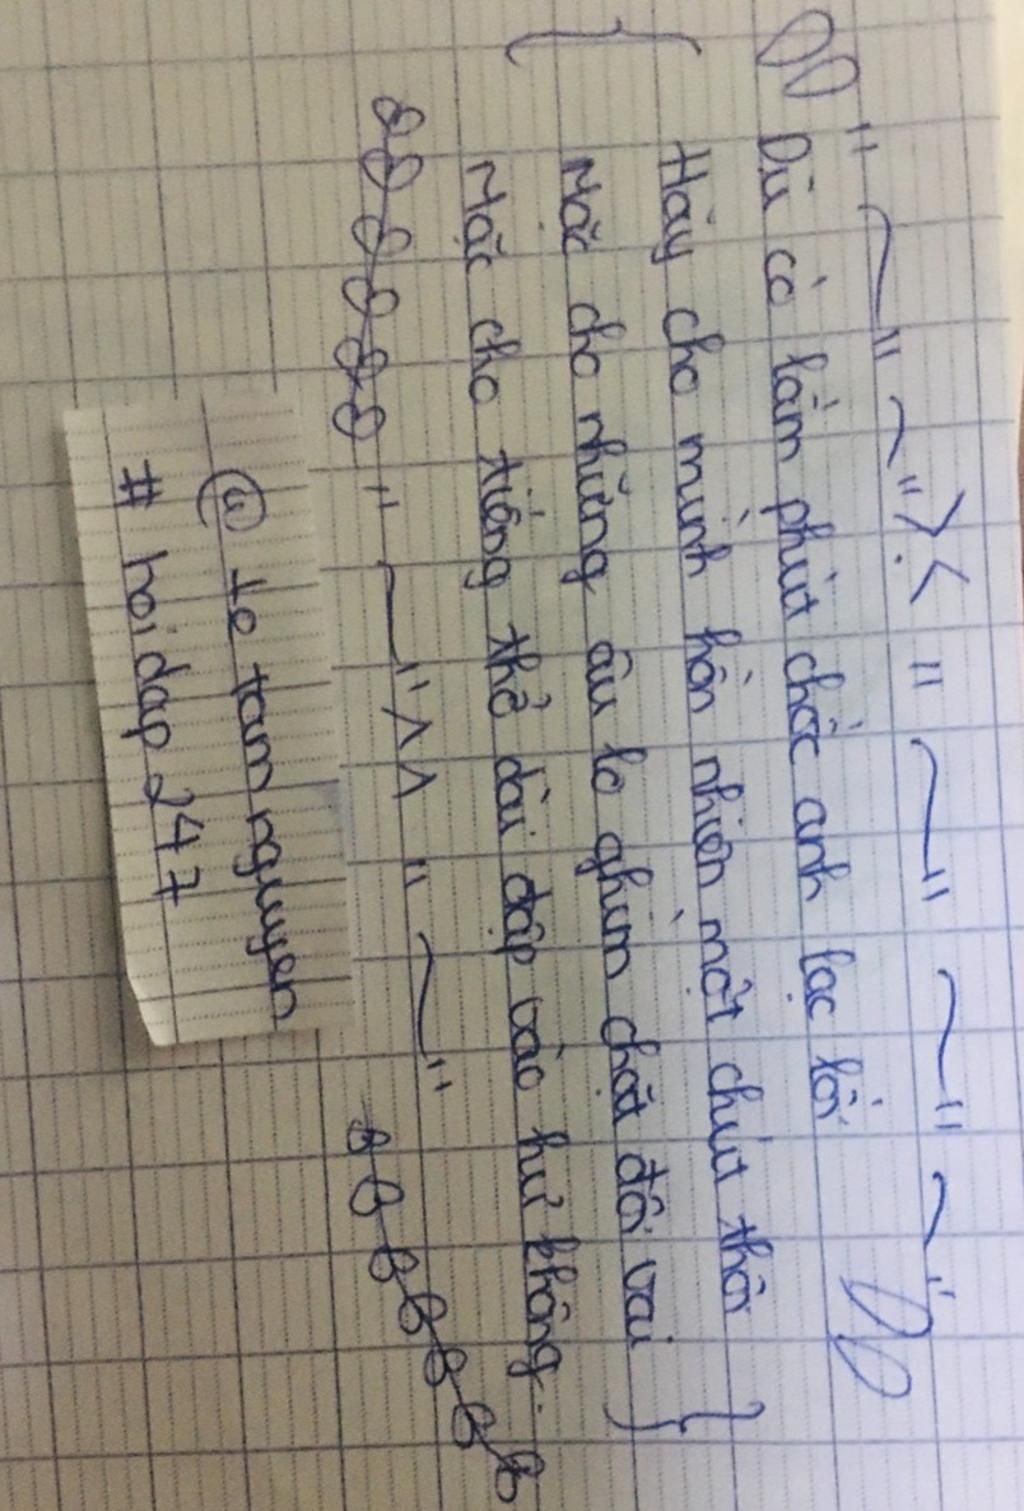 " ~ " ~ " >.< " ~ " ~ " ~ "
Dù có lắm phút chốc anh lạc lối
Hãy cho mình hồn nhiên một chút thôi
Mặc cho những âu lo ghìm chặt đôi vai
Mặc cho tiếng thở dài đập vào hư không..
" ~ " ^^ " ~ "
@ Le tam nguyen
# hoi dap 247